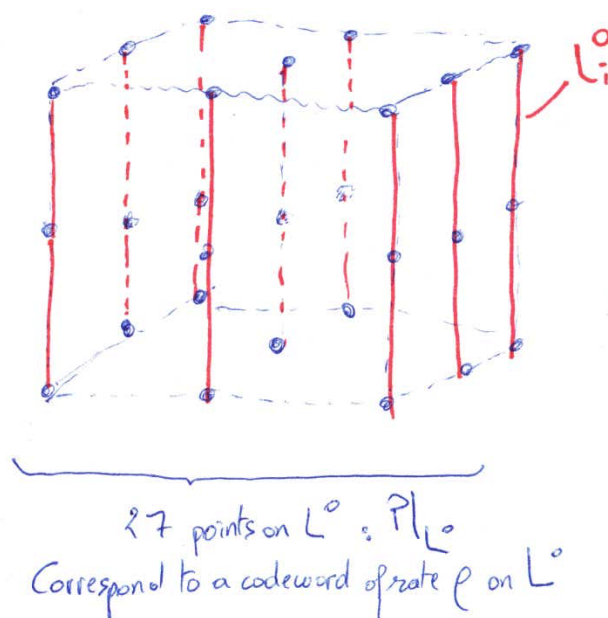 L°i
27 points on L° : P|L°
Correspond to a codeword of rate ρ on L°